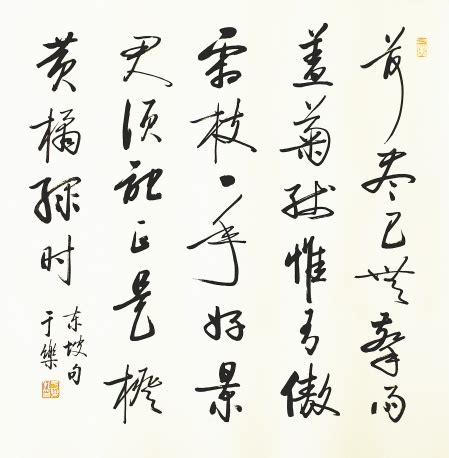 荷尽已無擎雨
盖菊残惟有傲
霜枝一年好景
君须记正是橙
黄橘绿时
东坡句
于樂